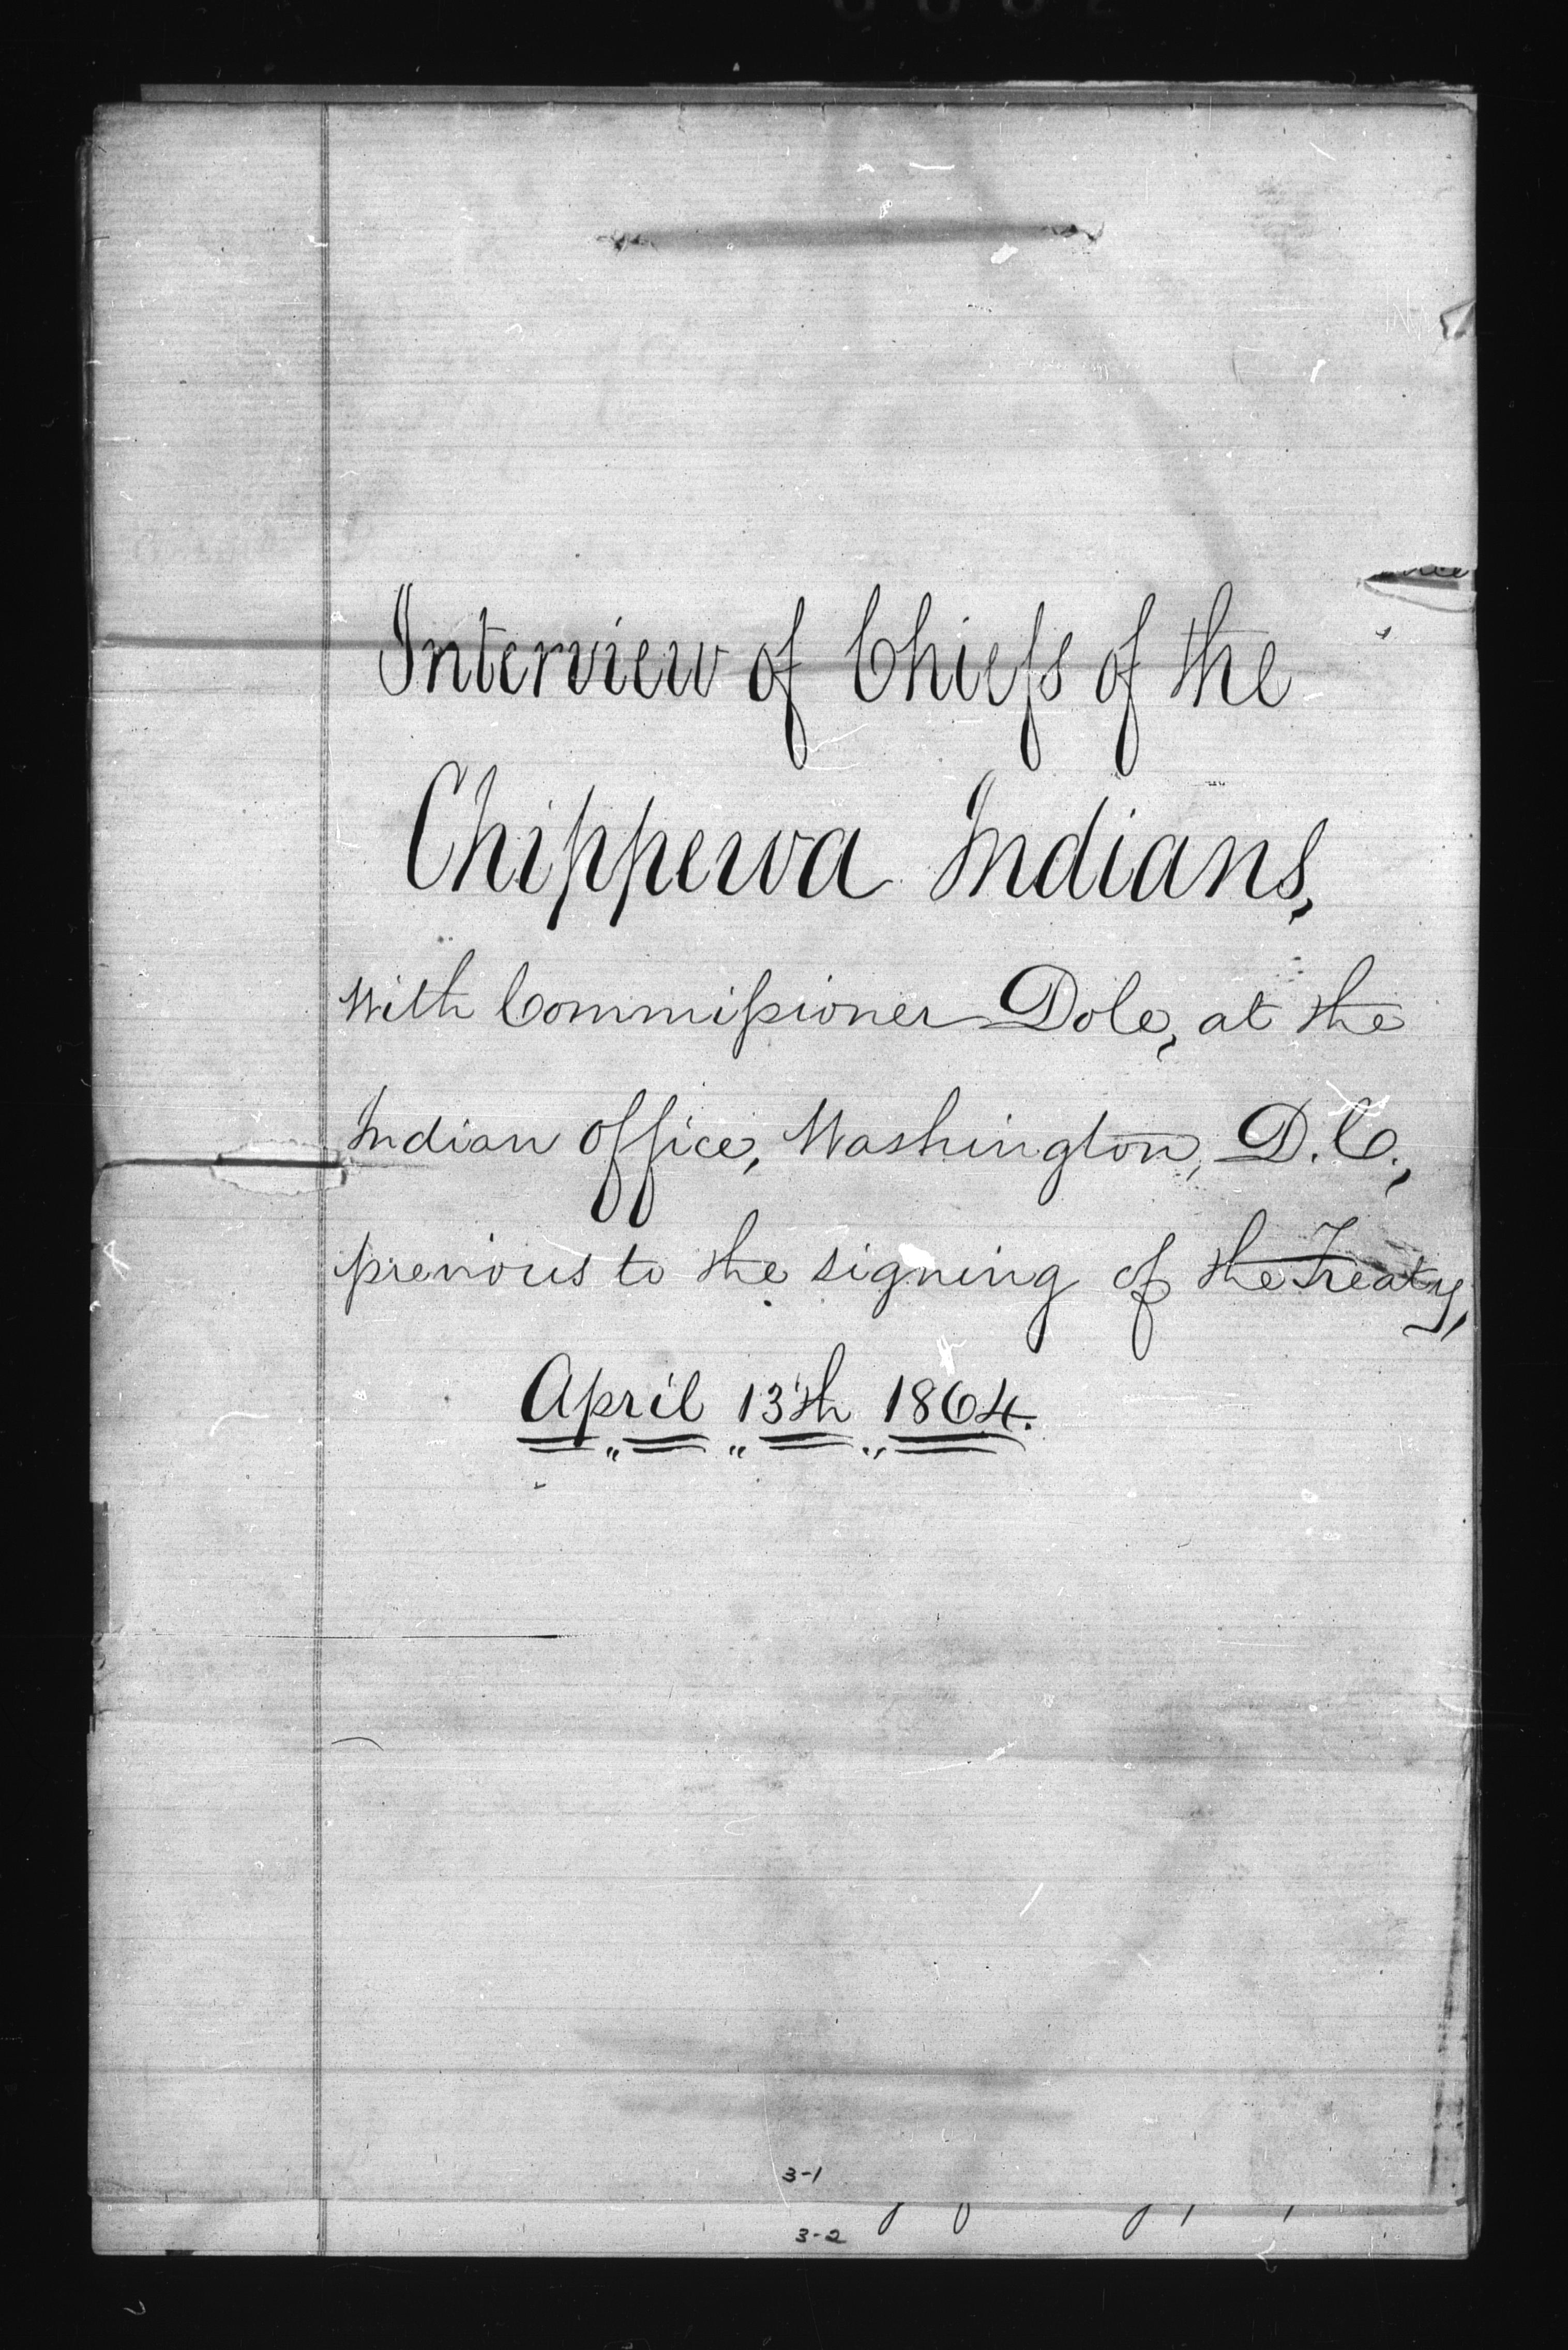 Interview of Chiefs of the
Chippewa Indians,
with Commissioner Dole, at the
Indian Office, Washington, D.C.,
previous to the signing of the Treaty,
April 13th 1864.
3-1
3-2